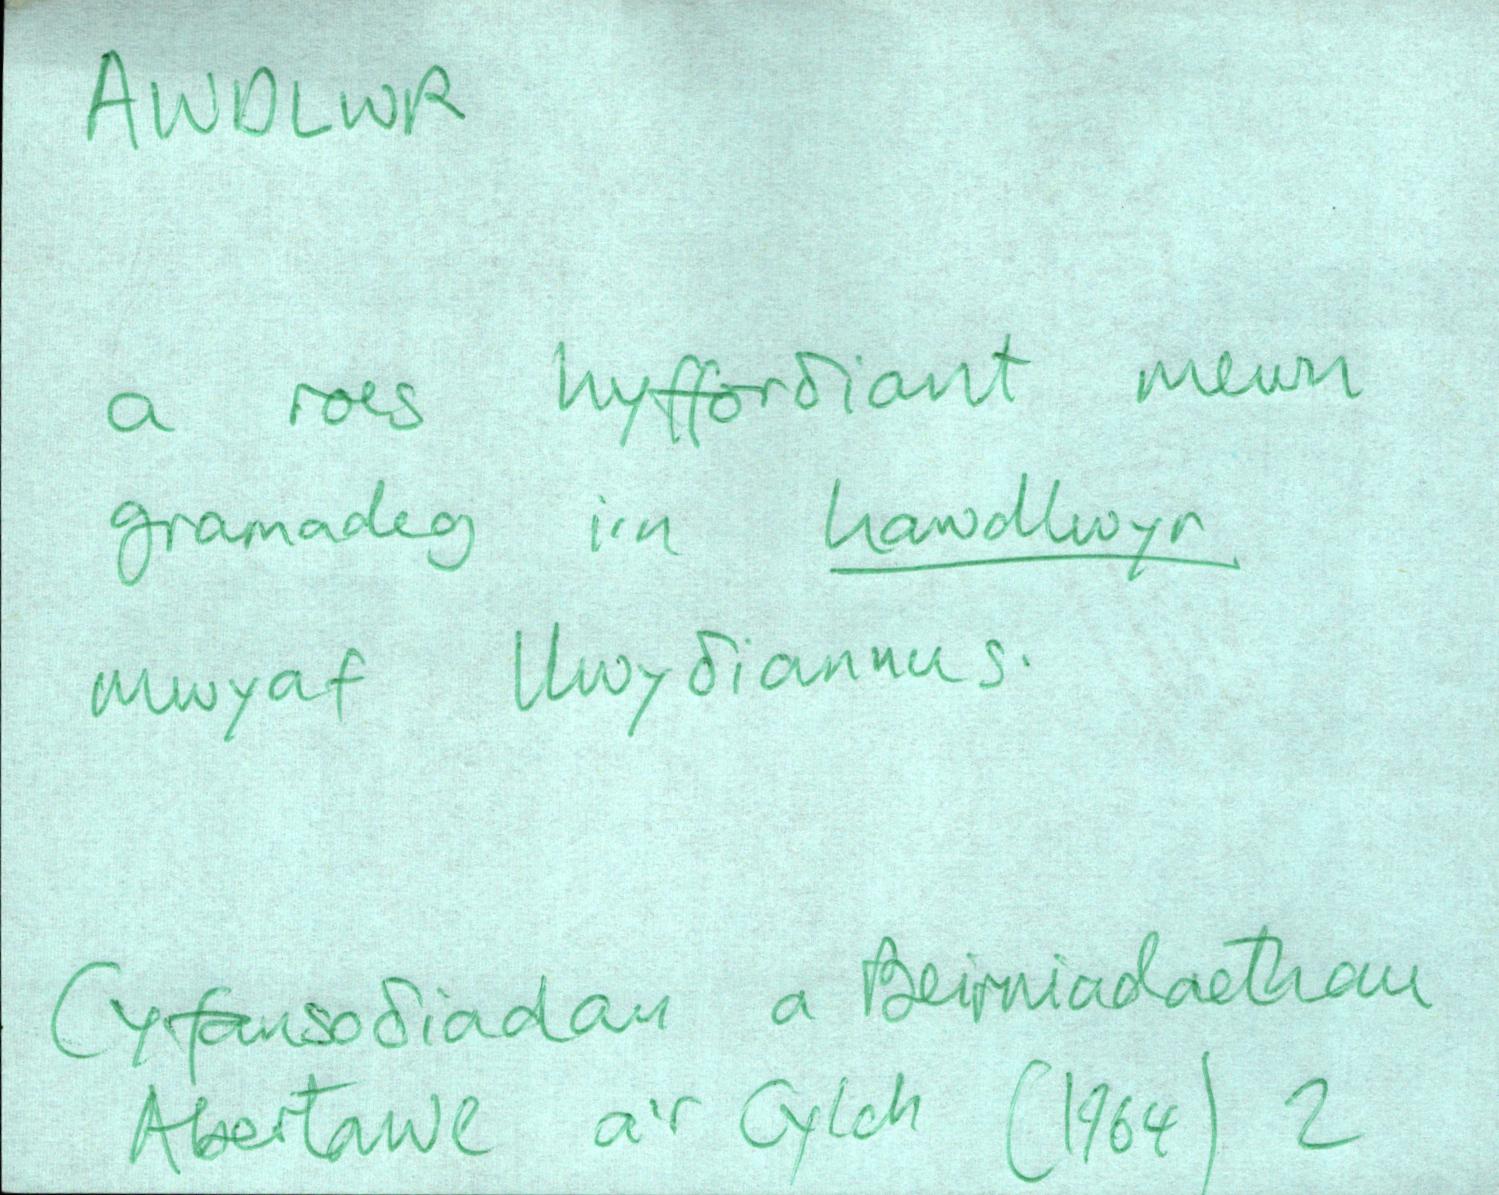 AWDLWR
a roes hyfforδiant mewn
gramadeg i'n hawdlwyr
mwyaf llwyδiannus.
Cyfansoδiadau a Beirniadaethau
Abertawe a'r Cylch (1964) 2